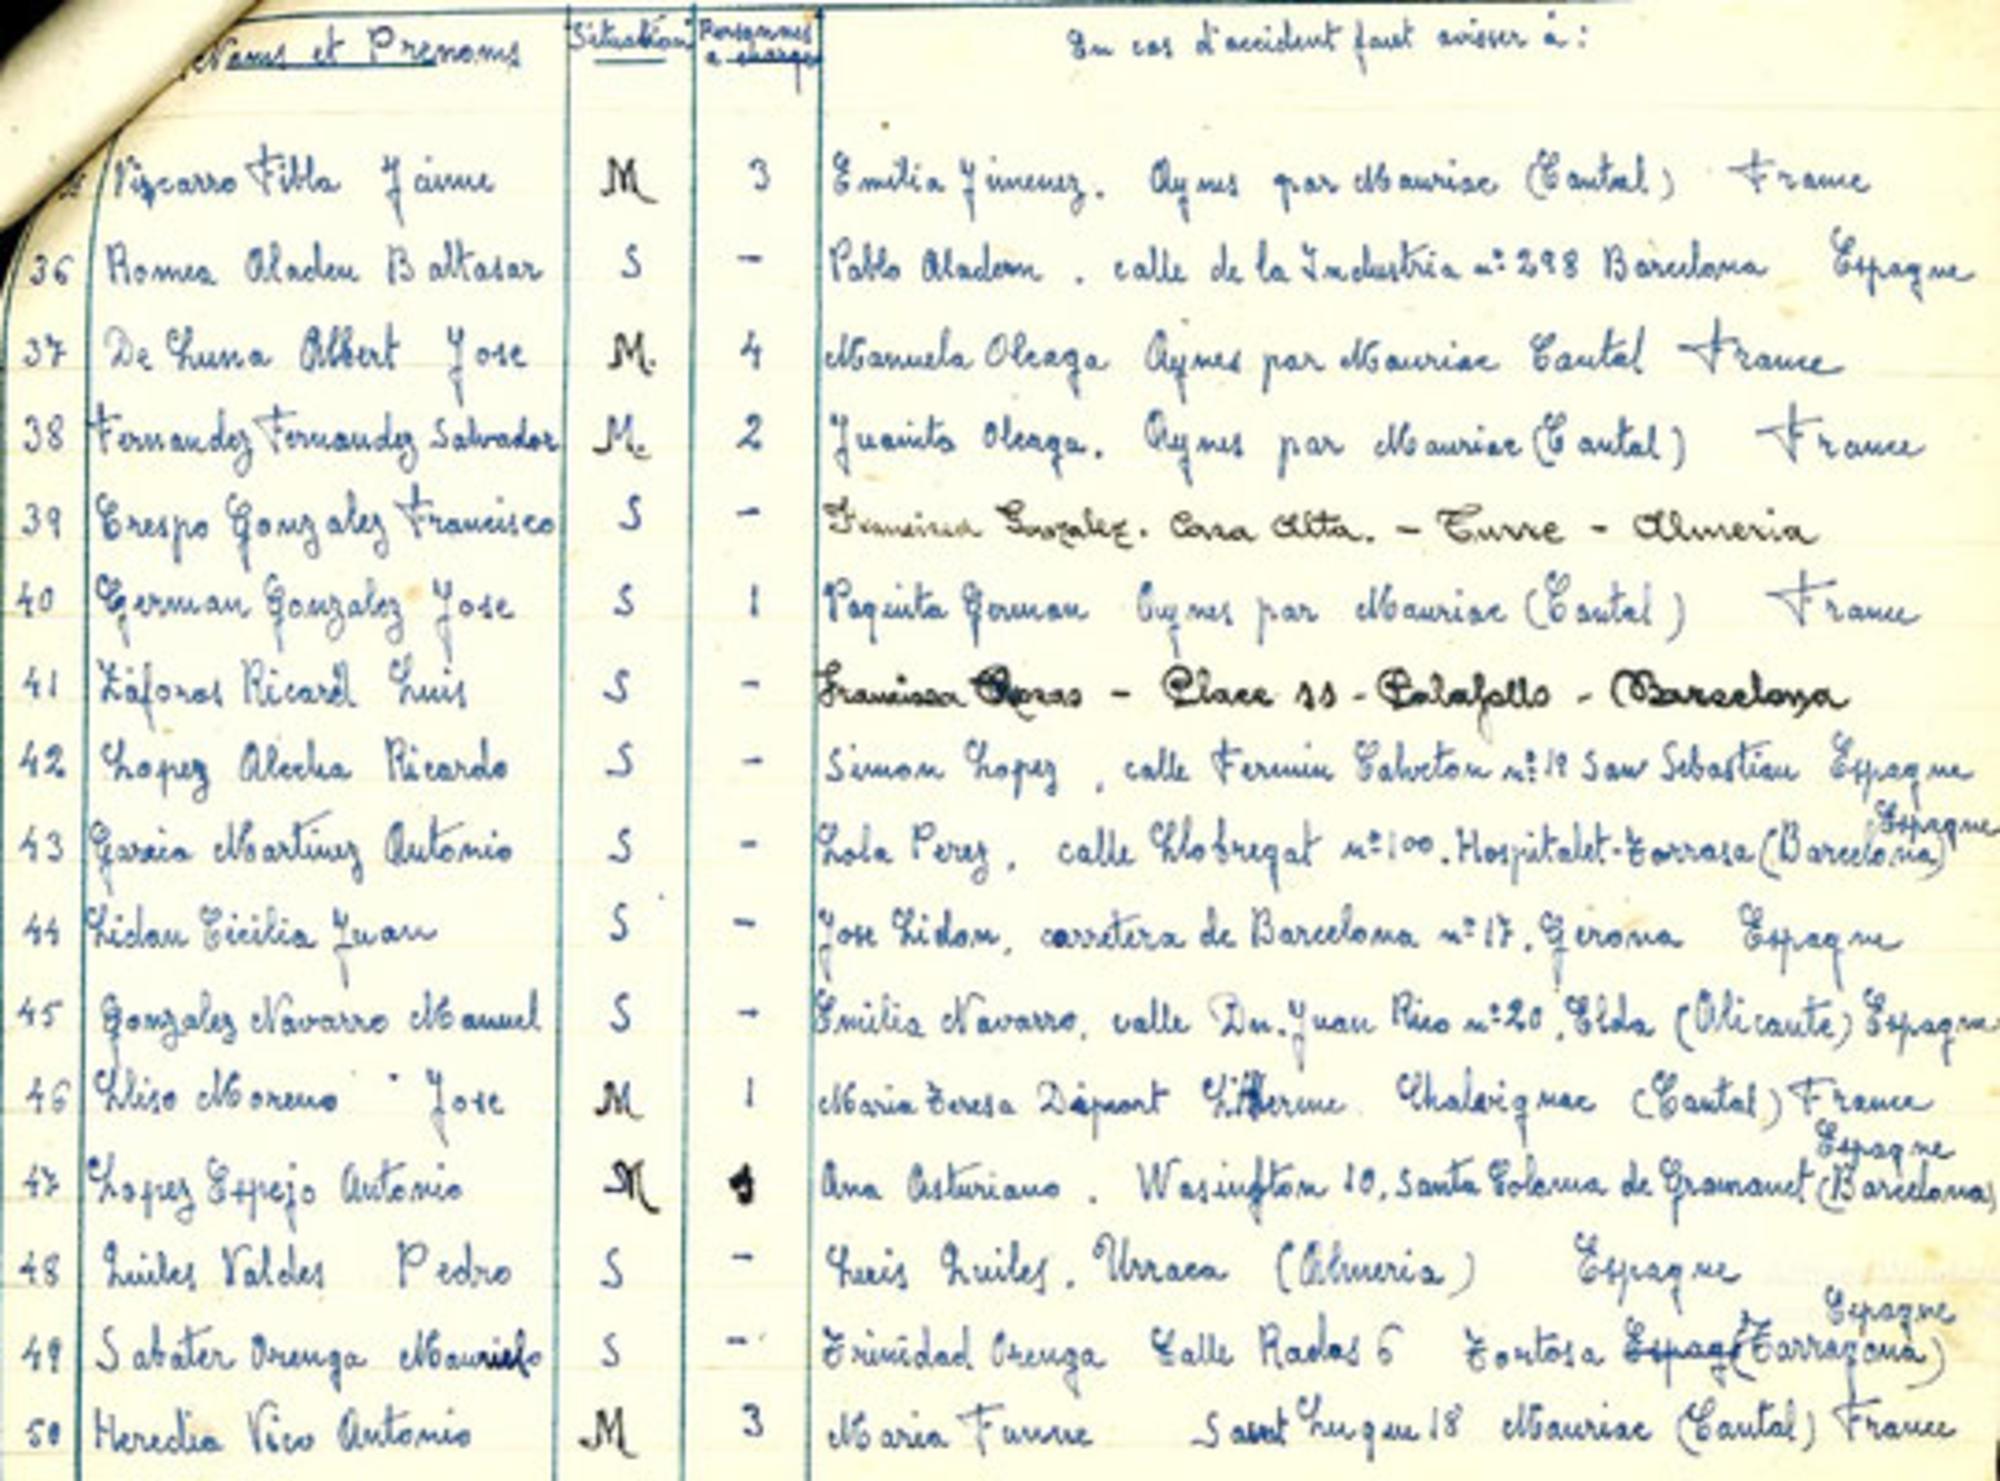 Noms et Prenoms Situation Personnes a charge En cas d'accident faut avisser à:
Vizcarro Fibla Jaime M 3 Emilia Jimenez. Aynes par Mauriac (Cantal) France
36 Romea Aladeu Baltasar S - Pablo Aladern, calle de la Industria nº 298 Barcelona Espagne
37 De Luna Albert Jose M. 4 Manuela Oleaga Aynes par Mauriac Cantal France
38 Fernandez Fernandez Salvador M. 2 Juanita Oleaga. Aynes par Mauriac (Cantal) France
39 Crespo Gonzalez Francisco S - Francisca Gonzalez. Casa Alta. - Turre - Almeria
40 German Gonzalez Jose S 1 Paquita German Aynes par Mauriac (Cantal) France
41 Záforas Ricard Luis S - Francisca - Place - Palafolls - Barcelona
42 Lopez Alecha Ricardo S - Simon Lopez, calle Fermin Calveton nº 19 San Sebastian Espagne
43 Garcia Martinez Antonio S - Lola Perez, calle Llobregat nº 100. Hospitalet-Torrasa (Barcelona) Espagne
44 Lidon Cicilia Juan S - Jose Lidon, carretera de Barcelona nº 17. Gerona Espagne
45 Gonzalez Navarro Manuel S - Emilia Navarro, calle Dn. Juan Rico nº 20. Elda (Alicante) Espagne
46 Lliso Moreno Jose M 1 Maria Teresa Chalvignac (Cantal) France
47 Lopez Espejo Antonio M Ana Asturiano. Wasington 10. Santa Coloma de Gramanet (Barcelona) Espagne
48 Quiles Valdes Pedro S - Luis Quiles. Urraca (Almeria) Espagne
49 Sabater Orenga Mauricio S - Trinidad Orenga Calle Rodas 6 Tortosa Espag (Tarragona) Espagne
50 Heredia Vico Antonio M 3 Maria Funne Saint 18 Mauriac (Cantal) France